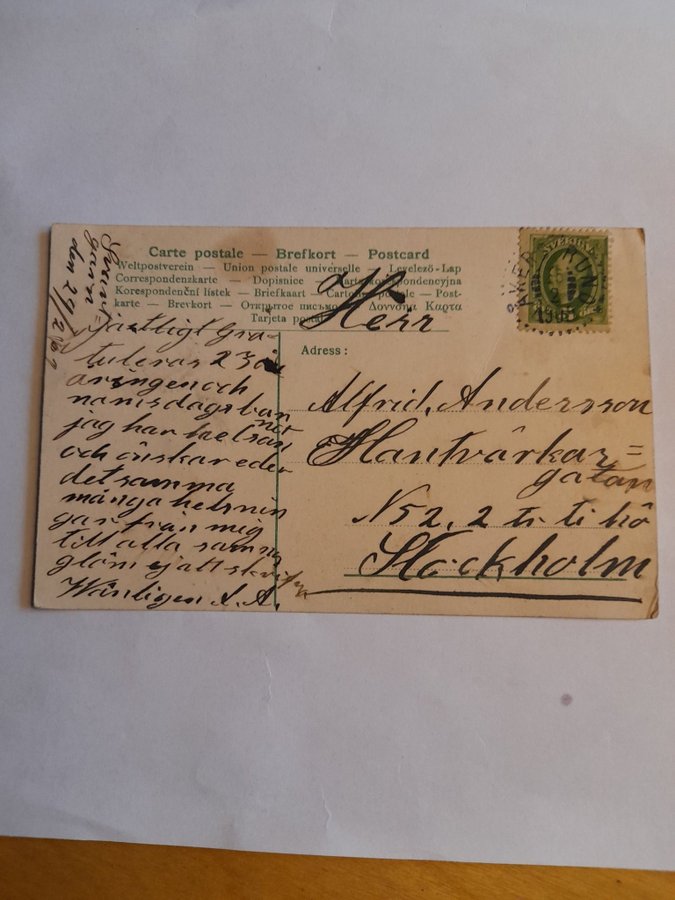 Carte postale — Brefkort — Postcard
Weltpostverein — Union postale universelle — Levelező-Lap
Correspondenzkarte — Dopisnice — Karta korespondencyjna
Korespondenční lístek — Briefkaart — Cartolina postale — Post-
karte — Brevkort — Открытое письмо — Δοννσνα Καρτα
Tarjeta postal
den 29/2
Herr
Adress:
Alfrid, Andersson
Hantvärkar=
gatan
N52, 2 tr ti hö
Stockholm
järtligt Gra-
tuleras
och
namsdags
jag har helsan
och önskar eder
det samma
många helsnin
gar från mig
till alla samm
glöm ej att skrifva
Wänligen A. A.
SVERIGE
ÅKERS